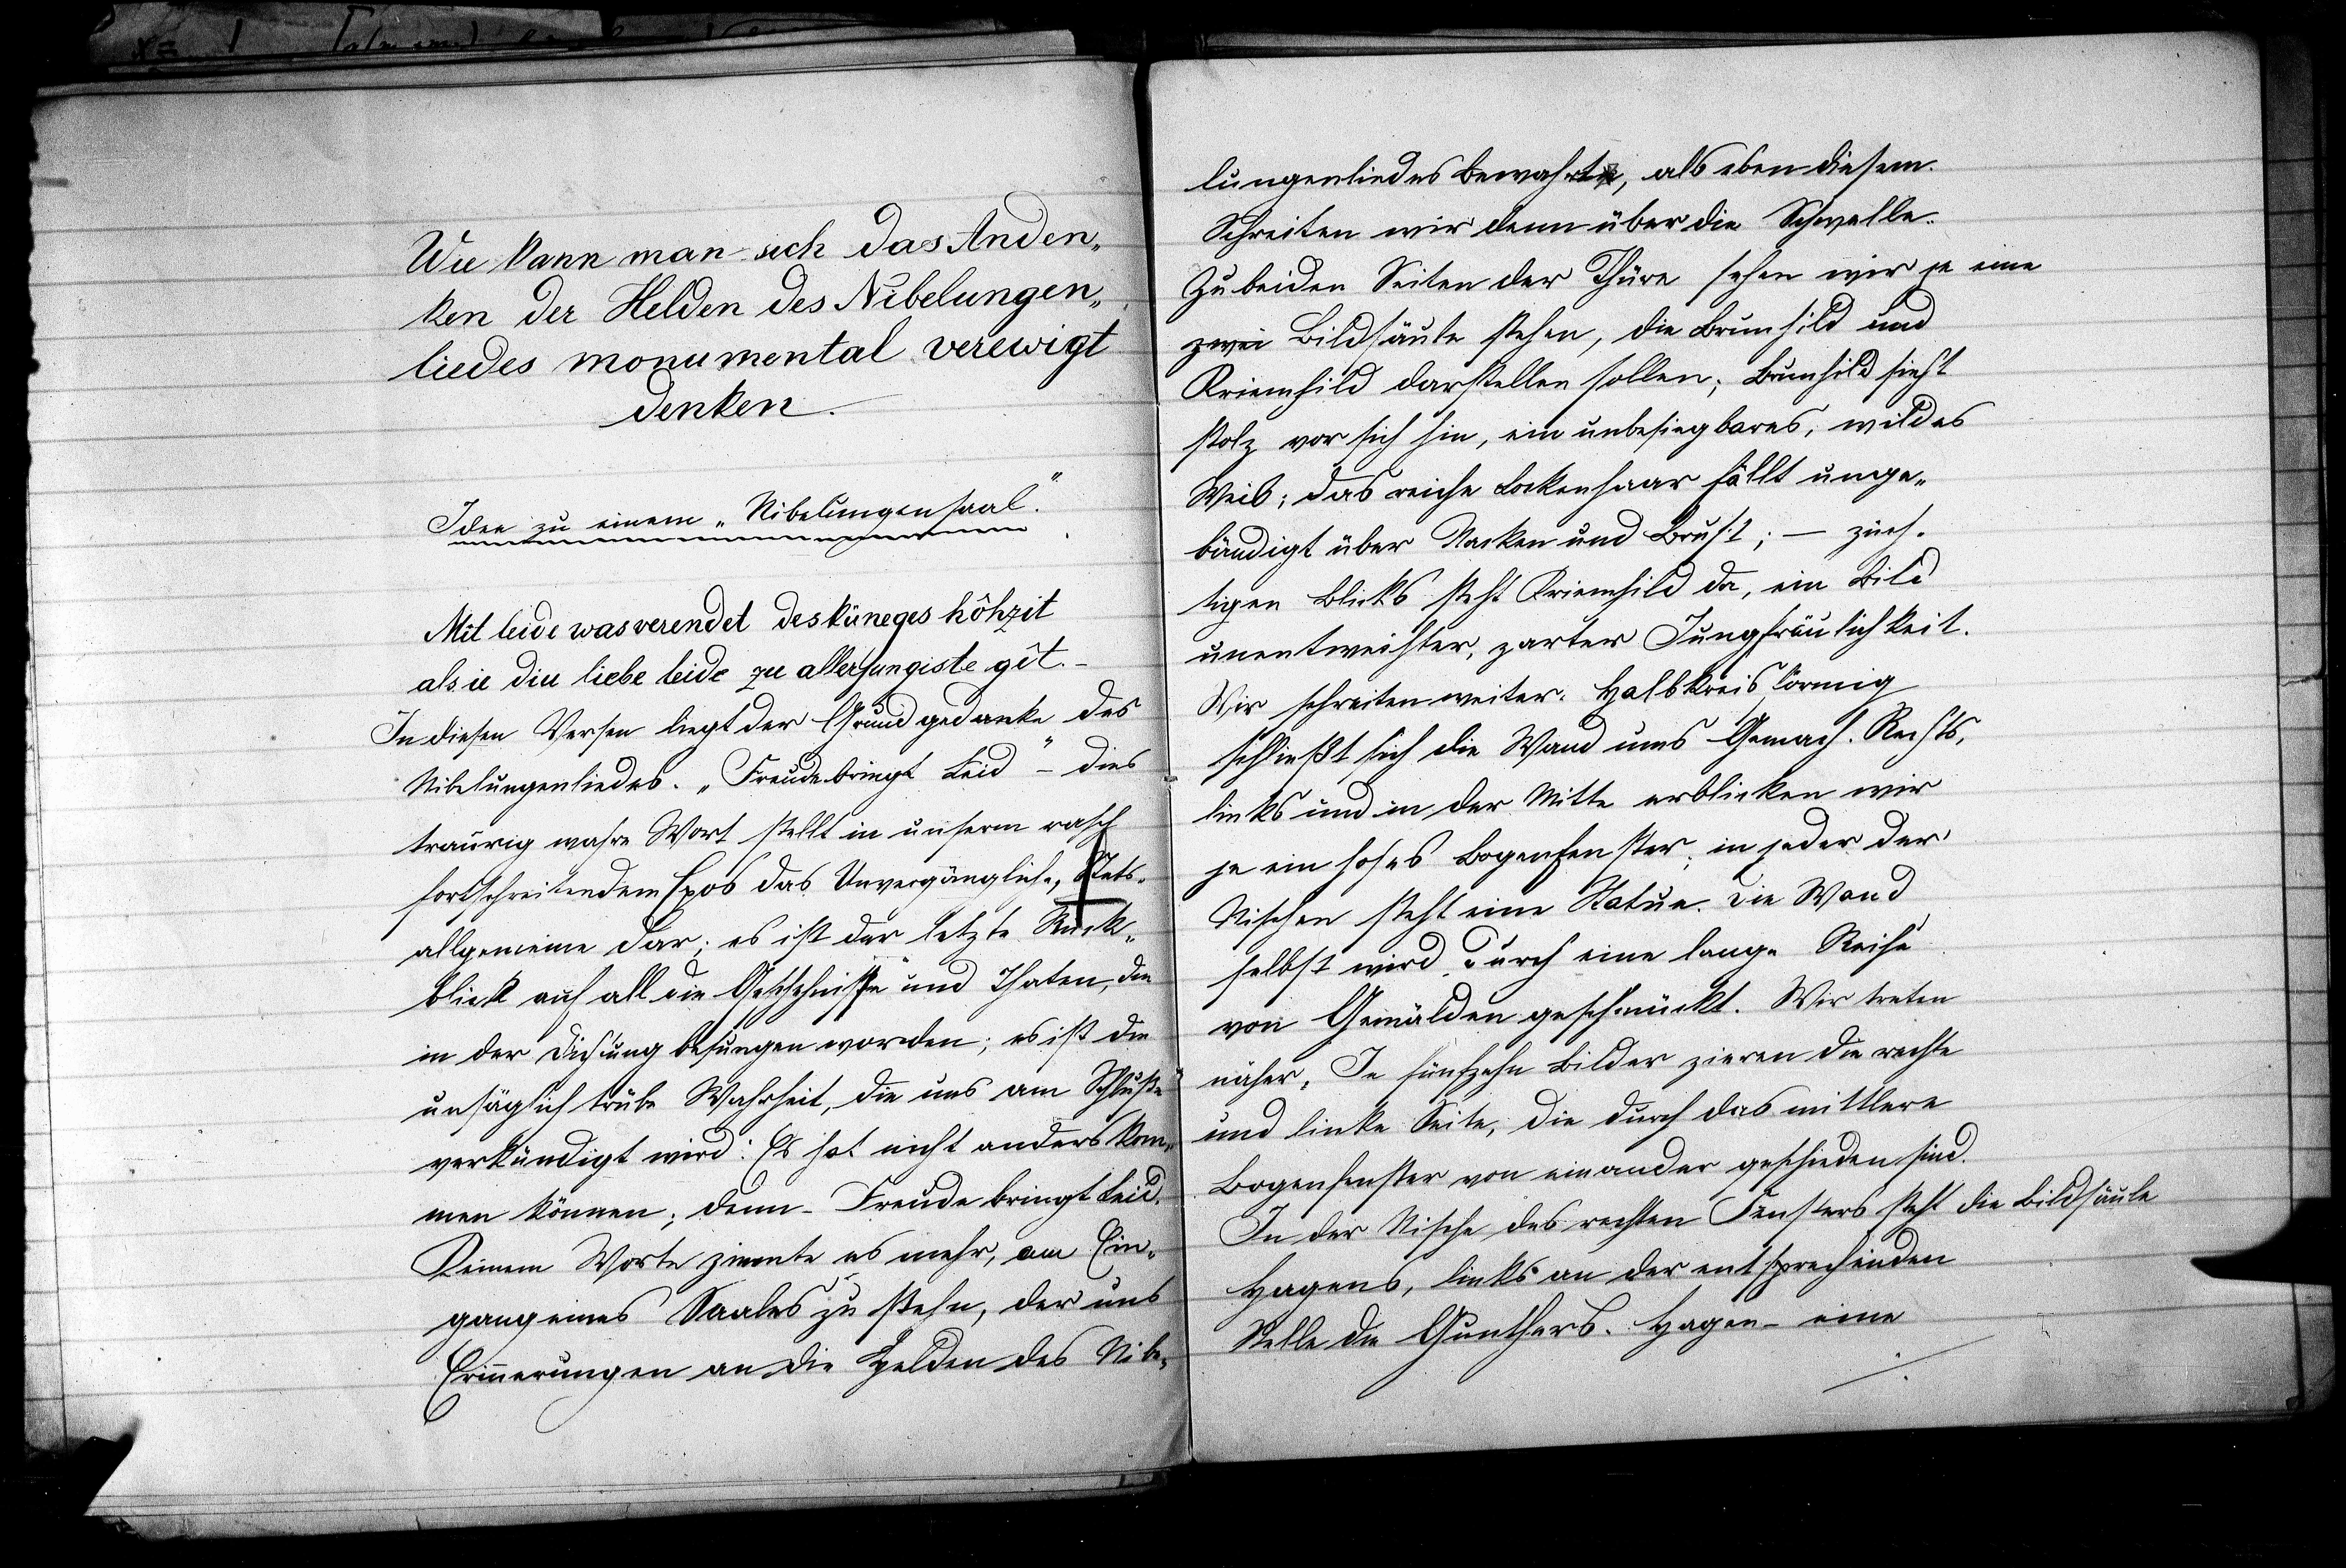 Wie kann man sich das Anden„
ken der Helden des Nibelungen„
liedes monumental verewigt
denken.
Idee zu einem „Nibelungensaal".
Mit leide was verendet des küneges hôhzit
als ie diu liebe leide ze allerjungiste gît. –
In diesen Versen liegt der Grundgedanke des
Nibelungenliedes. „Freude bringt Leid" – dies
traurig wahre Wort stellt in unserm rasch
fortschreitendem Epos das Unvergängliche, Stets-
allgemeine dar; es ist der letzte Rück„
blick auf all die Geschehnisse und Thaten, die
in der Dichtung besungen worden; es ist die
unsäglich trübe Wahrheit, die uns am Schluße
verkündigt wird: Es hat nicht anders kom„
men können; denn – Freude bringt Leid.
Keinem Worte ziemte es mehr, am Ein„
gang eines Saales zu stehn, der uns
Erinnerungen an die Helden des Nibe„
lungenliedes bewahrt, als eben diesem.
Schreiten wir denn über die Schwelle.
Zu beiden Seiten der Thüre sehen wir je eine
zwei Bildsäule stehen, die Brunhild und
Kriemhild darstellen sollen; Brunhild sieht
stolz vor sich hin, ein unbesiegbares, wildes
Weib; das reiche Lockenhaar fällt unge„
bändigt über Nacken und Brust; – züch-
tigen Blicks steht Kriemhild da, ein Bild
unentweihter, zarter Jungfräulichkeit.
Wir schreiten weiter. Halbkreisförmig
schließt sich die Wand ums Gemach. Rechts,
links und in der Mitte erblicken wir
je ein hohes Bogenfenster; in jeder der
Nischen steht eine Statue. Die Wand
selbst wird durch eine lange Reihe
von Gemälden geschmückt. Wir treten
näher. Je fünfzehn Bilder zieren die rechte
und linke Seite, die durch das mittlere
Bogenfenster von einander geschieden sind.
In der Nische des rechten Fensters steht die Bildsäule
Hagens, links an der entsprechenden
Stelle die Gunthers. Hagen – eine